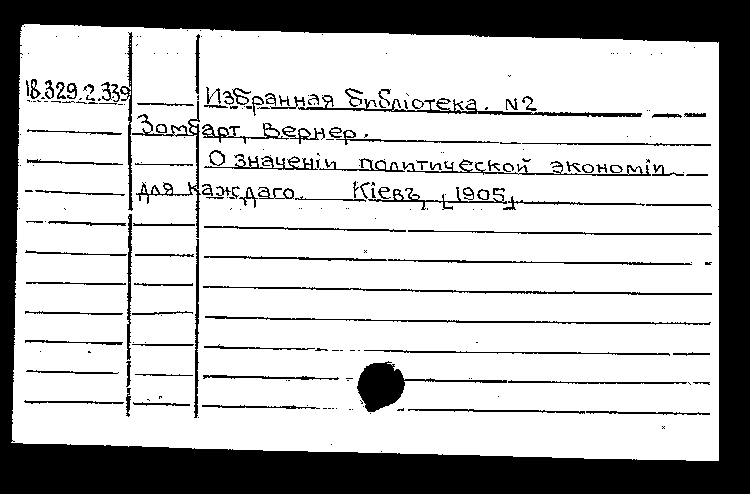 18.329.2.339 Избранная библіотека. N2
Зомбарт, Вернер.
О значеніи политической экономіи
для каждаго. Кіевъ, [1905].